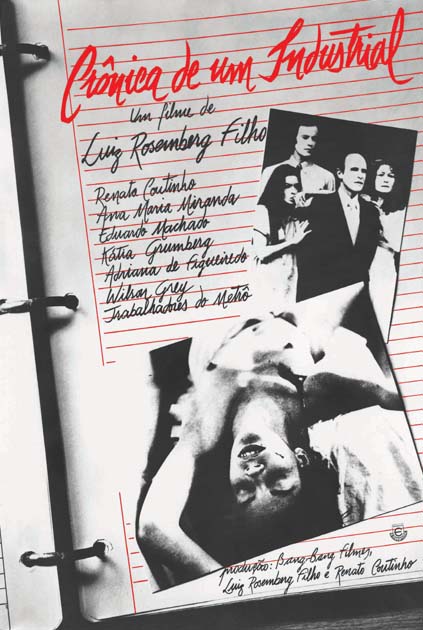 Crônica de um Industrial
Um filme de
Luiz Rosemberg Filho
Renato Coutinho
Ana Maria Miranda
Eduardo Machado
Kátia Grumberg
Adriana de Figueiredo
Wilson Grey
Trabalhadores do Metrô
produção: Bang-Bang Filmes,
Luiz Rosemberg Filho e Renato Coutinho